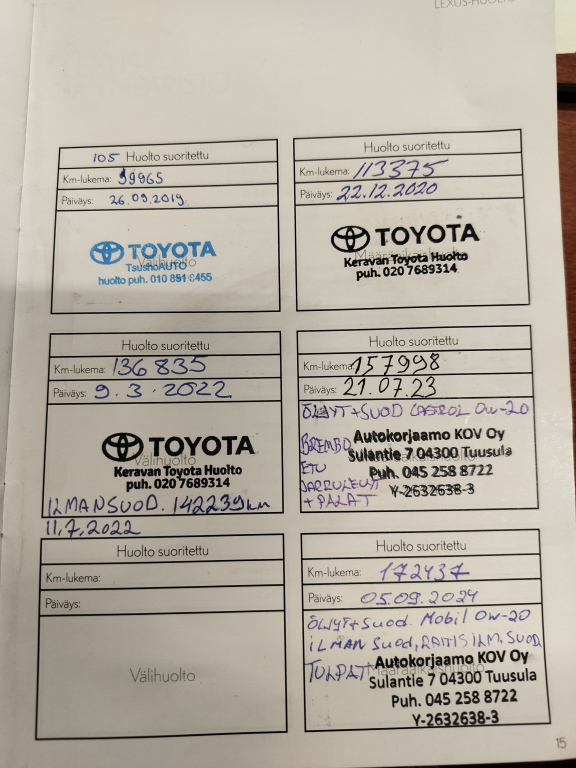 LEXUS-HUOLTO
105 Huolto suoritettu
Km-lukema: 99965
Päiväys: 26.09.2019
TOYOTA
Välihuolto
TsushoAUTO
huolto puh. 010 851 8455
Huolto suoritettu
Km-lukema: 113375
Päiväys: 22.12.2020
TOYOTA
Määräaikaishuolto
Keravan Toyota Huolto
puh. 020 7689314
Huolto suoritettu
Km-lukema: 136835
Päiväys: 9.3.2022
TOYOTA
Välihuolto
Keravan Toyota Huolto
puh. 020 7689314
ILMANSUOD. 142239km
11.7.2022
Huolto suoritettu
Km-lukema: 157998
Päiväys: 21.07.23
ÖLJYT+SUOD CASTROL 0W-20
BREMBO
ETU
JARRULEVYT
+ PALAT
Autokorjaamo KOV Oy
Sulantie 7 04300 Tuusula
Puh. 045 258 8722
Y-2632638-3
Huolto suoritettu
Km-lukema:
Päiväys:
Välihuolto
Huolto suoritettu
Km-lukema: 172437
Päiväys: 05.09.2024
ÖLJYT+Suod. Mobil 0W-20
ILMAN Suod, RAITIS ILM. SUOD
TULPAT
Määräaikaishuolto
Autokorjaamo KOV Oy
Sulantie 7 04300 Tuusula
Puh. 045 258 8722
Y-2632638-3
15